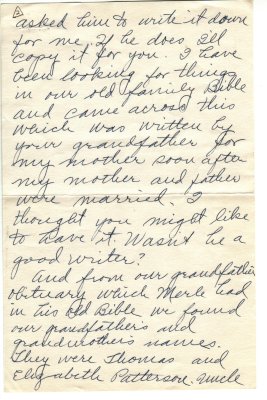 asked him to write it down
for me. If he does I'll
copy it for you. I have
been looking for things
in our old family Bible
and came across this
which was written by
your grandfather for
my mother soon after
my mother and father
were married. I
thought you might like
to have it. Wasn't he a
good writer?
And from our grandfather
obituary which Merle had
in his Old Bible we found
our grandfather's and
grandmother's names.
They were Thomas and
Elizabeth Patterson. Uncle